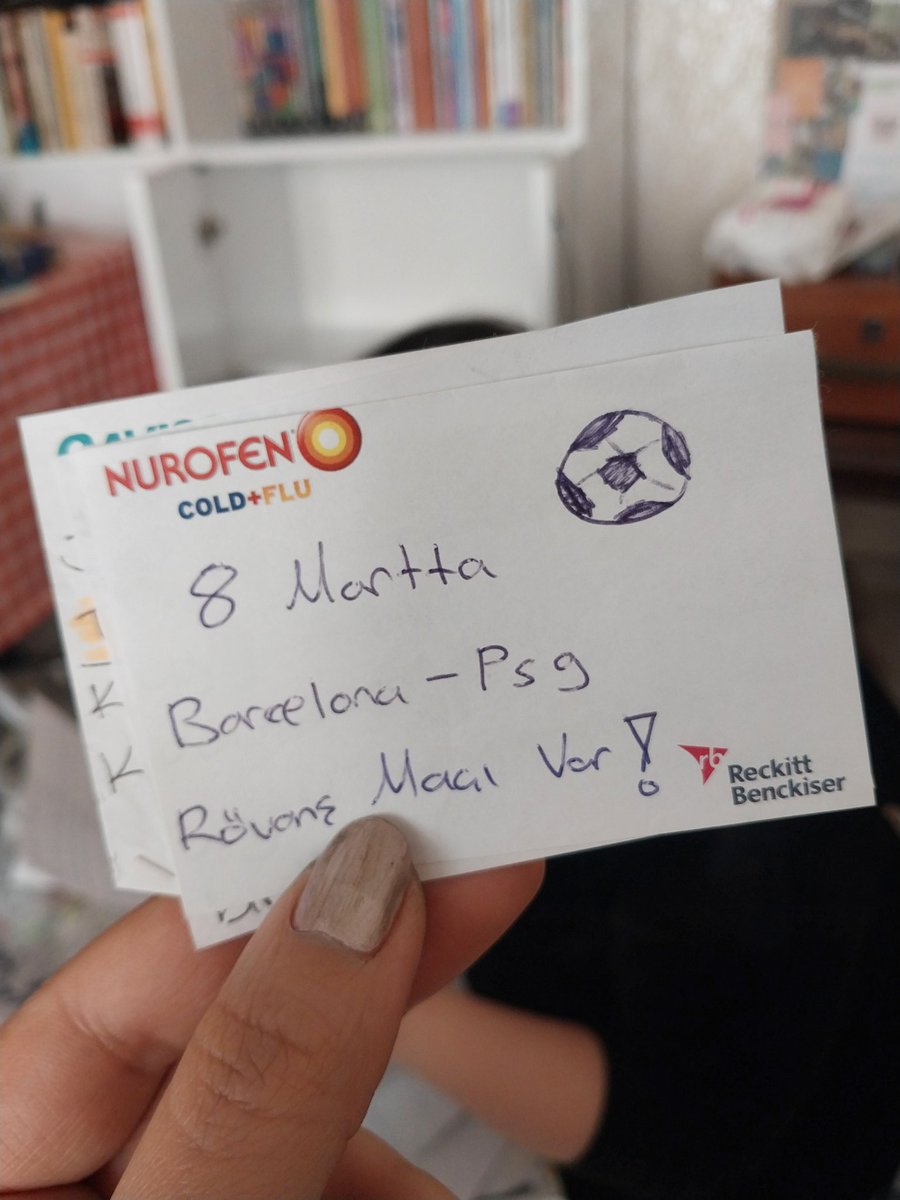 NUROFEN
COLD+FLU
8 Martta
Barcelona - Psg
Rövanş Maçı Var!
rb Reckitt
Benckiser
K
K